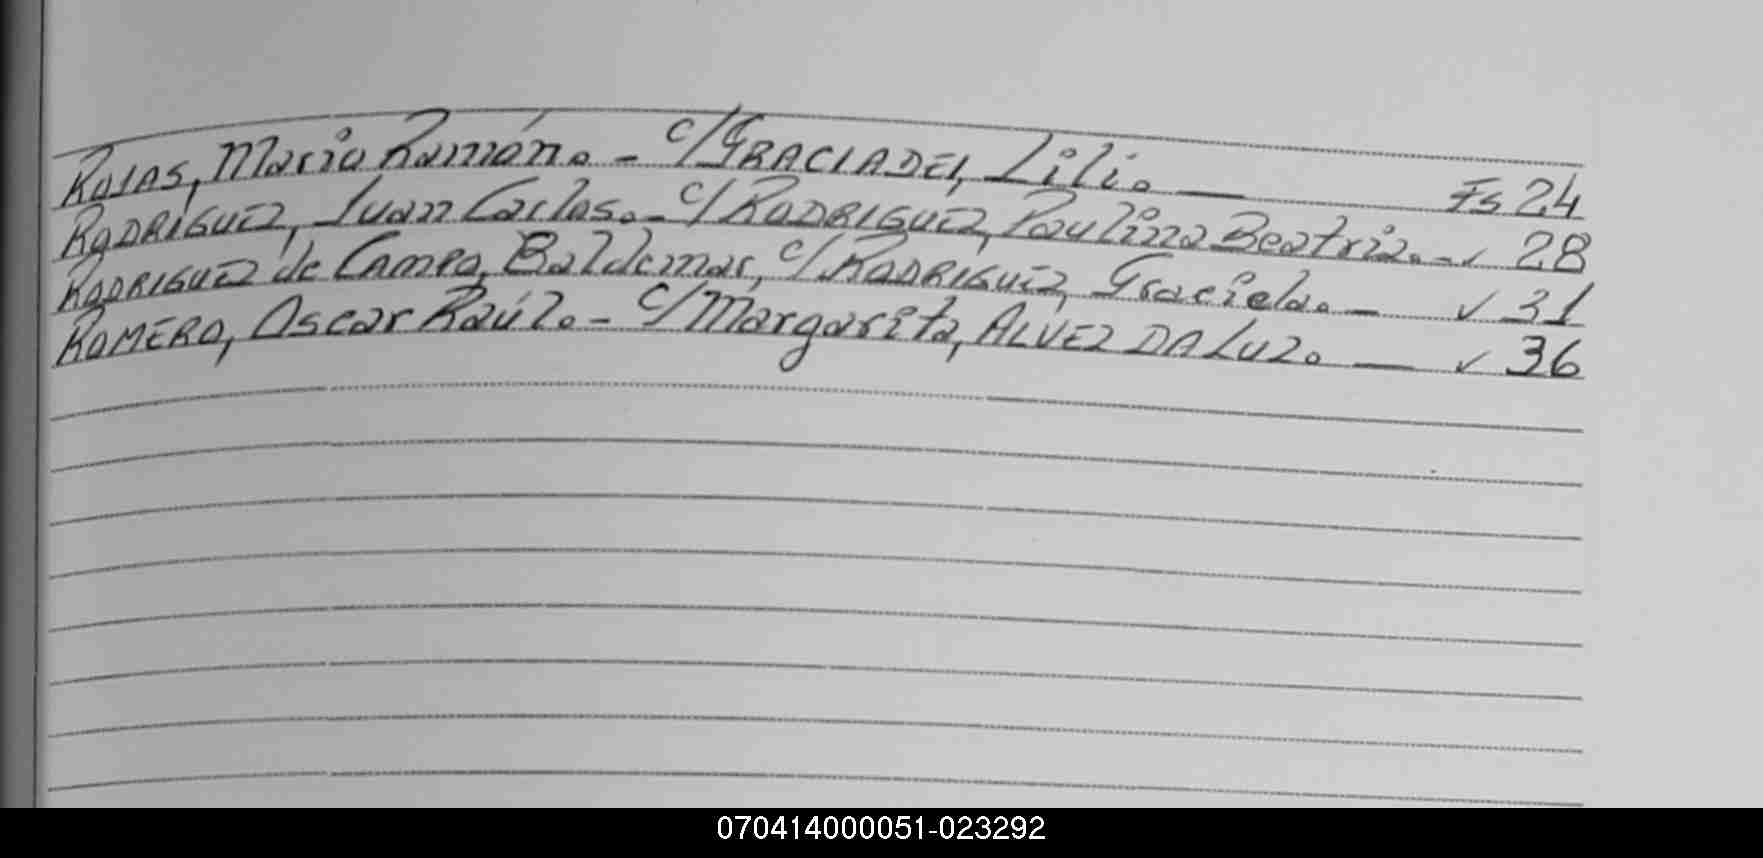 ROJAS, Mario Ramón. - c/ GRACIADEI, Lili. — Fs 24
RODRIGUEZ, Juan Carlos. - c/ RODRIGUEZ, Paulina Beatriz. - ✓ 28
RODRIGUEZ de CAMPO, Baldemar, c/ RODRIGUEZ, Graciela. — ✓ 31
ROMERO, Oscar Raúl. - c/ Margarita, ALVEZ DA LUZ. — ✓ 36
070414000051-023292